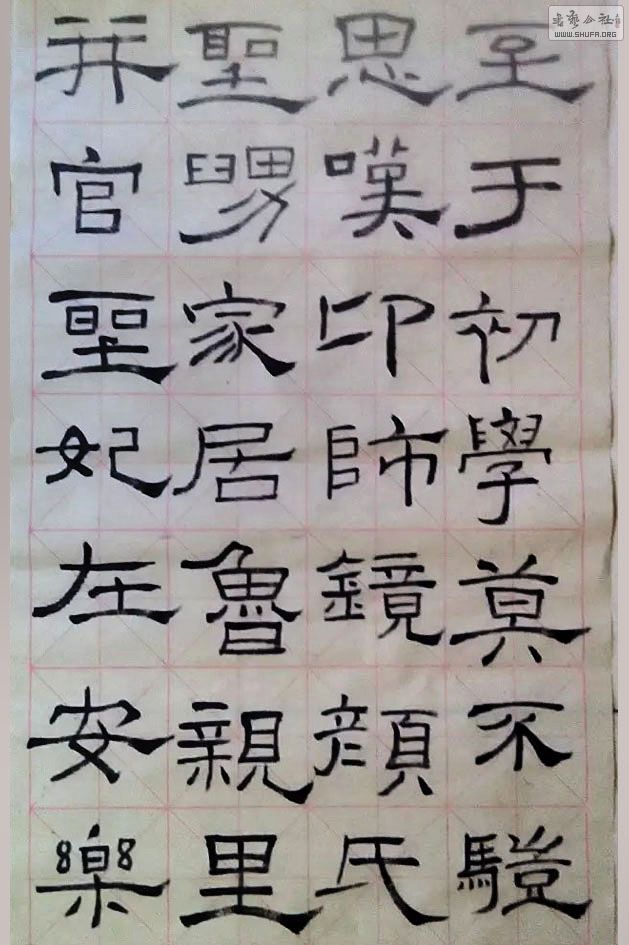 至于初學莫不䮗
思嘆卬師鏡顏氏
聖舅家居魯親里
并官聖妃在安樂
书艺公社
WWW.SHUFA.ORG